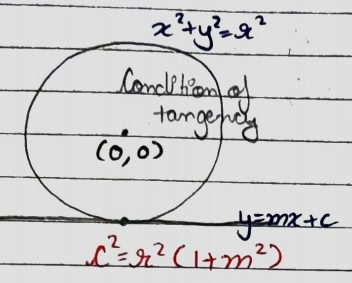 x²+y²=r²
Condition of
tangency
(0,0)
y=mx+c
c²=r²(1+m²)